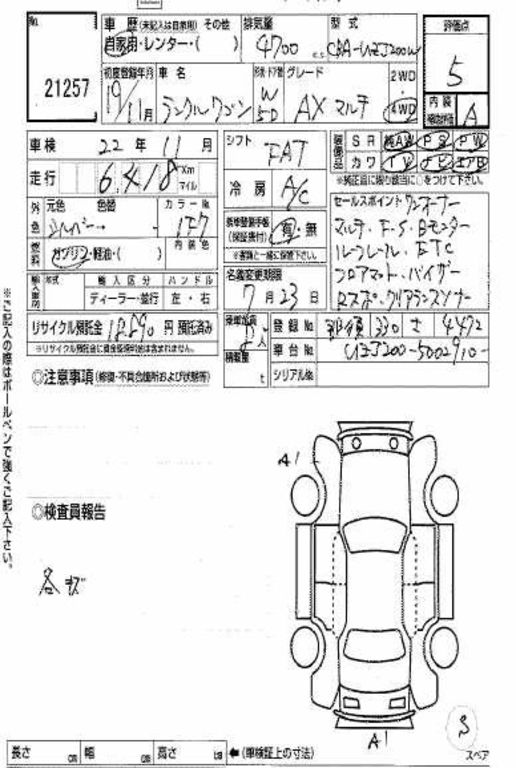 No. 21257
車歴 (未記入は自家用) その他 排気量 型式 評価点
自家用・レンター・( ) 4700 c.c. CBA-UZJ200W 5
初度登録年月 車名 形状・ドア数 グレード 2WD・4WD 内装補助評価 A
19/11月 ランクルワゴン W 5D AX マルチ
車検 22年 11月 シフト FAT 装備品 SR 純AW PS PW
カワ TV ナビ エアB
走行 6,418 Km マイル 冷房 A/C ※純正品に限り該当に○をつけて下さい。
外色 元色 色替 カラーNo. 新車整備手帳(保証書付) 有・無 セールスポイント ワンオーナー
シルバー 1F7 ※書類と一緒に保管下さい。 マルチ・F・S・Bモニター
燃料 ガソリン・軽油・( ) 内装色 名義変更期限 ルーフレール・ETC
輸入車用 年式 輸入区分 ハンドル 7月23日 フロアマット・バイザー
ディーラー・並行 左・右 Rスポ・クリアランスソナー
リサイクル預託金 預託済み 乗車定員 人 登録No. 330 さ 4472
※リサイクル預託金に資金管理料金は含まれません。 積載量 t 車台No. UZJ200-5002910-
◎注意事項 (修復・不具合箇所および状態等) シリアルNo.
A1
◎検査員報告
各キズ
※ご記入の際はボールペンで強くご記入下さい。
A1
3
スペア
長さ cm 幅 cm 高さ cm ←(車検証上の寸法)